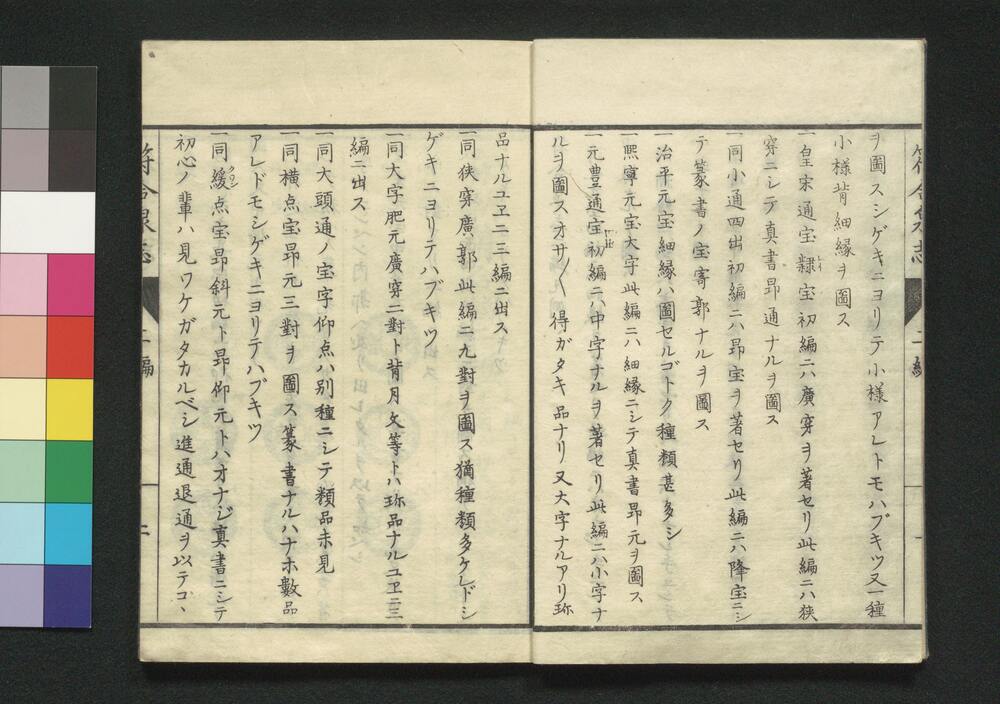 ヲ圖スシゲキニヨリテ小様アレトモハブキツ又一種
小様背細縁ヲ圖ス
一皇宋通宝隷宝初編ニハ廣穿ヲ著セリ此編ニハ狭
穿ニシテ真書昂通ナルヲ圖ス
一同小通四出初編ニハ昂宝ヲ著セリ此編ニハ降宝ニシ
テ篆書ノ宝寄郭ナルヲ圖ス
一治平元宝細縁ハ圖セルゴトク種類甚多シ
一熈寧元宝大字此編ニハ細縁ニシテ真書昂元ヲ圖ス
一元豊通宝初編ニハ中字ナルヲ著セリ此編ニハ小字ナ
ルヲ圖スオサ〱得ガタキ品ナリ又大字ナルアリ珎
品ナルユヱニ三編ニ出ス
一同狭穿廣郭此編ニ九對ヲ圖ス猶種類多ケレドシ
ゲキニヨリテハブキツ
一同大字肥元廣穿二對ト背月文等トハ珎品ナルユヱニ三
編ニ出ス
一同大頭通ノ宝字仰点ハ別種ニシテ類品未見
一同横点宝昂元三對ヲ圖ス篆書ナルハナホ數品
アレドモシゲキニヨリテハブキツ
一同緩点宝昂斜元ト昂仰元トハオナジ真書ニシテ
初心ノ輩ハ見ワケガタカルベシ進通退通ヲ以テコヽ